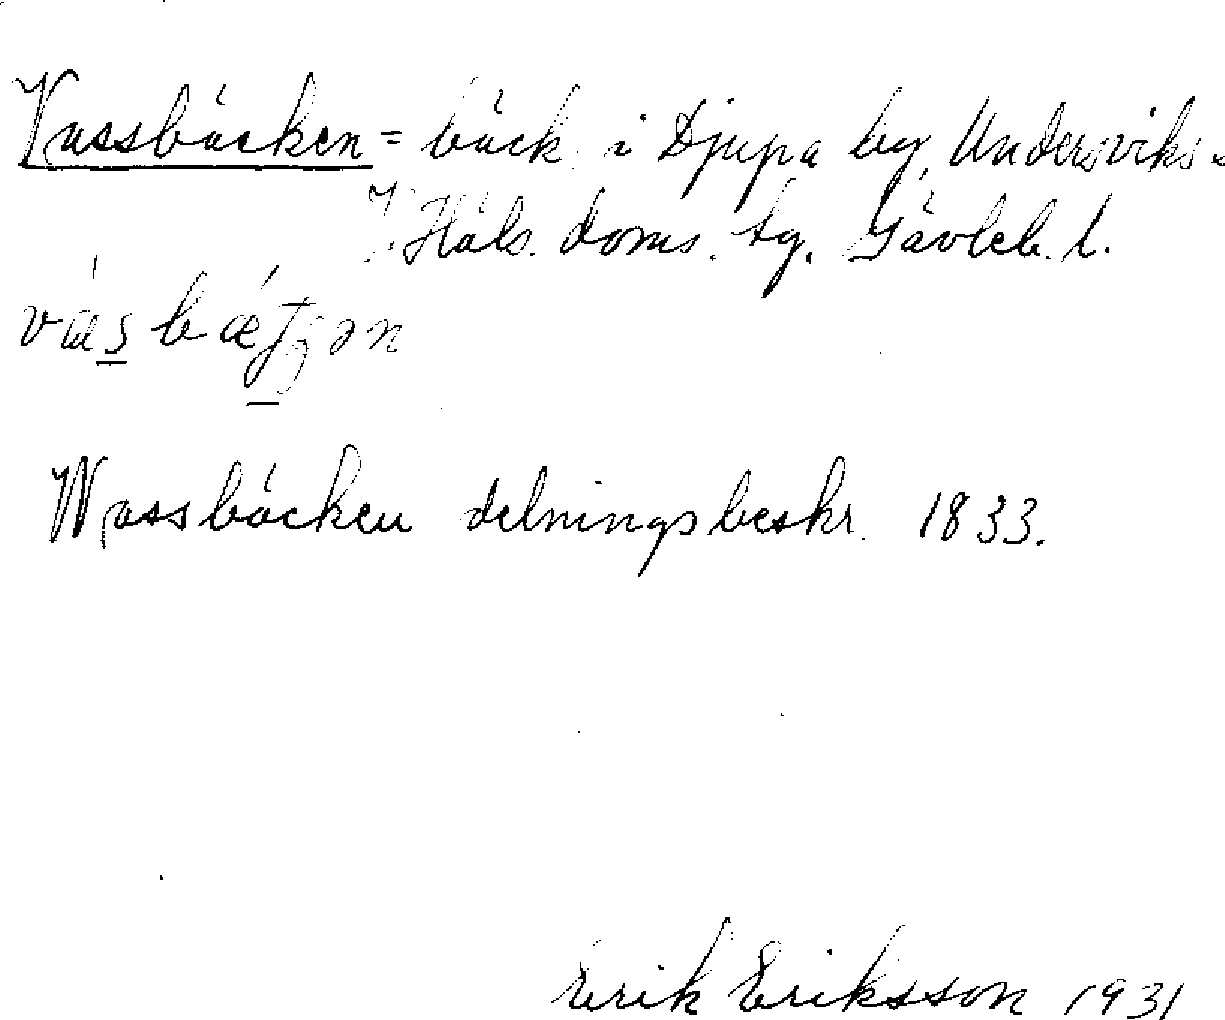 Vassbäcken = bäck i Djupa by, Undersviks
V. Häls. doms. tg. Gävleb. l.
Wassbäcken delningsbeskr. 1833.
Erik Eriksson 1931